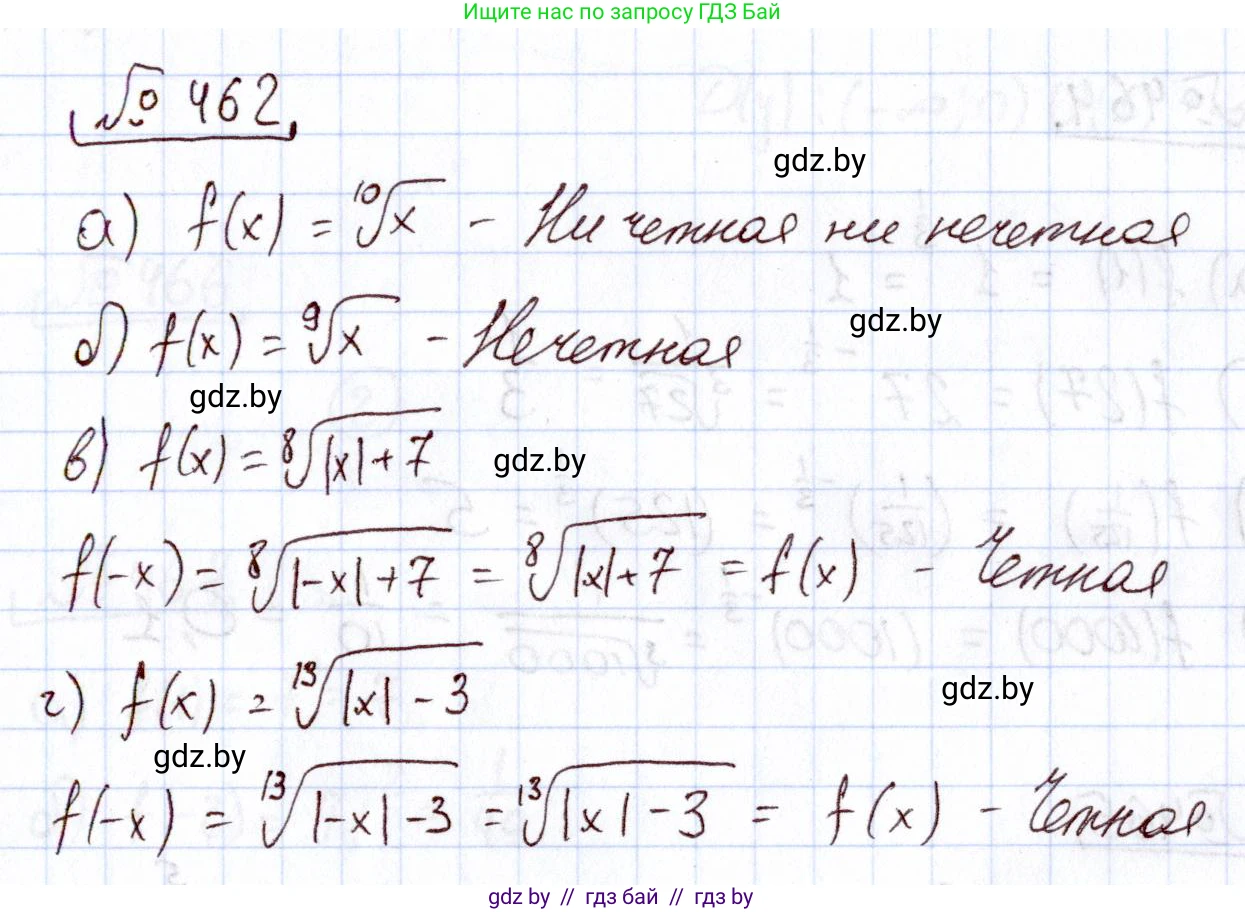 Ищите нас по запросу ГДЗ Бай
№ 462
gdz.by
а) f(x) = ¹⁰√x - Ни четная ни нечетная
gdz.by
б) f(x) = ⁹√x - Нечетная
gdz.by
в) f(x) = ⁸√(|x| + 7)
gdz.by
f(-x) = ⁸√(|-x| + 7) = ⁸√(|x| + 7) = f(x) - Четная
г) f(x) = ¹³√(|x| - 3)
gdz.by
gdz.by
f(-x) = ¹³√(|-x| - 3) = ¹³√(|x| - 3) = f(x) - Четная
gdz by // гдз бай // гдз by